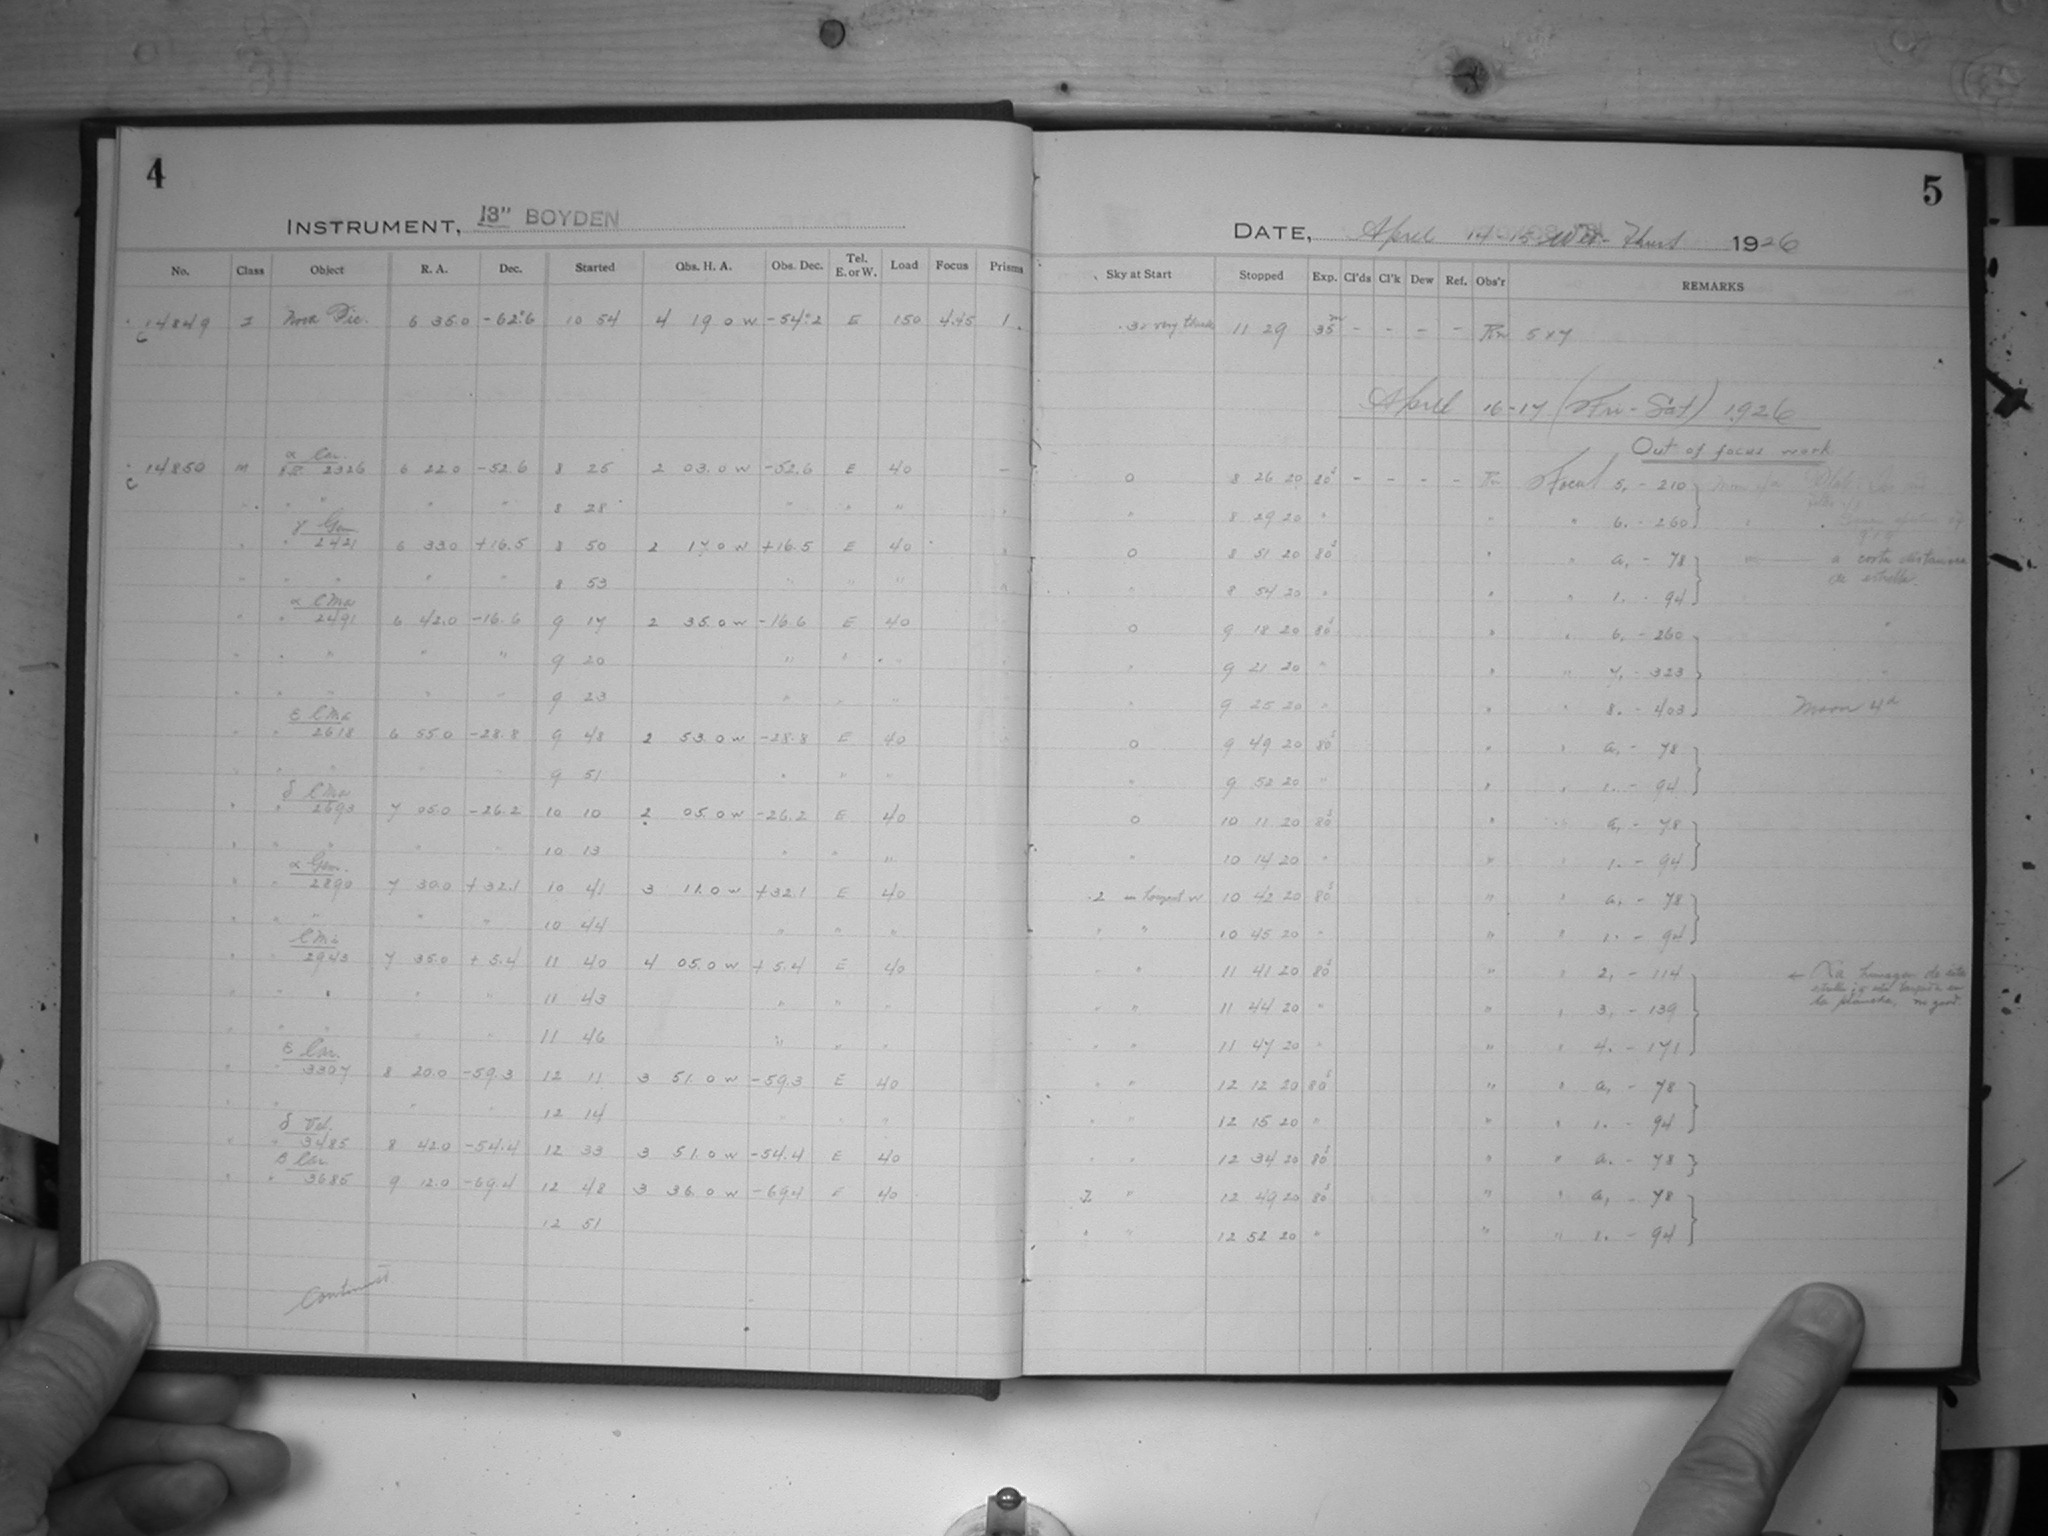 4
INSTRUMENT, 13" BOYDEN
No. Class Object R. A. Dec. Started Obs. H. A. Obs. Dec. Tel. E. or W. Load Focus Prisms
C 14849 I Nova Pic. 6 35.0 -62.6 10 54 4 19.0 W -54.2 E 150 4.45 1
α Car.
C 14850 M 2326 6 22.0 -52.6 8 25 2 03.0 W -52.6 E 40 -
" " " 8 28 " " "
γ Gem
" 2421 6 33.0 +16.5 8 50 2 17.0 W +16.5 E 40
" " " " " 8 53 " " "
α C Ma
" " 2491 6 42.0 -16.6 9 17 2 35.0 W -16.6 E 40
" " " " " 9 20 " " "
" " " " " 9 23 " " "
ε C Ma
" " 2618 6 55.0 -28.8 9 48 2 53.0 W -28.8 E 40
" " " " " 9 51 " " "
δ C Ma
" " 2693 7 05.0 -26.2 10 10 2 05.0 W -26.2 E 40
" " " " " 10 13 " " "
α Gem.
" " 2890 7 30.0 +32.1 10 41 3 11.0 W +32.1 E 40
" " " " " 10 44 " " "
C Mi
" " 2943 7 35.0 +5.4 11 40 4 05.0 W +5.4 E 40
" " " " " 11 43 " " "
" " " " " 11 46 " " "
ε Car.
" " 3307 8 20.0 -59.3 12 11 3 51.0 W -59.3 E 40
" " " " " 12 14 " " "
δ Vel.
" " 3485 8 42.0 -54.4 12 33 3 51.0 W -54.4 E 40
β Car
" " 3685 9 12.0 -69.4 12 48 3 36.0 W -69.4 E 40
12 51
Continued
5
DATE, April 14-15 Wed-Thurs 1926
Sky at Start Stopped Exp. Cl'ds Cl'k Dew Ref. Obs'r REMARKS
very 11 29 35m - - - - 5x7
April 16-17 (Fri-Sat) 1926
Out of focus work
0 8 26 20 80s - - - - Focus 5. - 210
" 8 29 20 " " " 6. - 260
0 8 51 20 80s " " a. - 78 a corta distancia
de estrella.
" 8 54 20 " " " 1. - 94
0 9 18 20 80s " " 6. - 260
" 9 21 20 " " " 7. - 323
" 9 25 20 " " " 8. - 403 Moon 4d
0 9 49 20 80s " " a. - 78
" 9 52 20 " " " 1. - 94
0 10 11 20 80s " " a. - 78
" 10 14 20 " " " 1. - 94
.2 W 10 42 20 80s " " a. - 78
" " 10 45 20 " " " 1. - 94
" " 11 41 20 80s " " 2. - 114 ← La de esta
estrella en
" " 11 44 20 " " " 3. - 139 la plancha, no good
" " 11 47 20 " " " 4. - 171
" " 12 12 20 80s " " a. - 78
" " 12 15 20 " " " 1. - 94
" " 12 34 20 80s " " a. - 78
" 12 49 20 80s " " a. - 78
" " 12 52 20 " " " 1. - 94